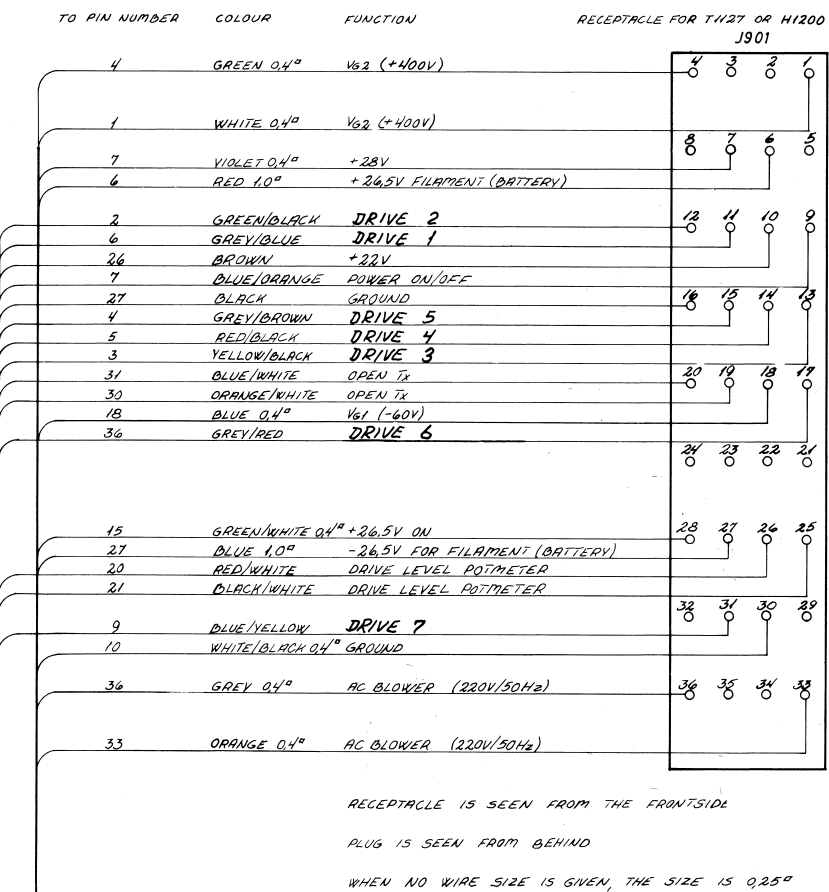 TO PIN NUMBER COLOUR FUNCTION RECEPTACLE FOR T1127 OR H1200
J901
4 GREEN 0,4□ VG2 (+400V) 4 3 2 1
1 WHITE 0,4□ VG2 (+400V)
8 7 6 5
7 VIOLET 0,4□ +28V
6 RED 1,0□ +26,5V FILAMENT (BATTERY)
2 GREEN/BLACK DRIVE 2 12 11 10 9
6 GREY/BLUE DRIVE 1
26 BROWN +22V
7 BLUE/ORANGE POWER ON/OFF
27 BLACK GROUND 16 15 14 13
4 GREY/BROWN DRIVE 5
5 RED/BLACK DRIVE 4
3 YELLOW/BLACK DRIVE 3
31 BLUE/WHITE OPEN Tx 20 19 18 17
30 ORANGE/WHITE OPEN Tx
18 BLUE 0,4□ VG1 (-60V)
36 GREY/RED DRIVE 6
24 23 22 21
15 GREEN/WHITE 0,4□ +26,5V ON 28 27 26 25
27 BLUE 1,0□ -26,5V FOR FILAMENT (BATTERY)
20 RED/WHITE DRIVE LEVEL POTMETER
21 BLACK/WHITE DRIVE LEVEL POTMETER
32 31 30 29
9 BLUE/YELLOW DRIVE 7
10 WHITE/BLACK 0,4□ GROUND
36 GREY 0,4□ AC BLOWER (220V/50Hz) 36 35 34 33
33 ORANGE 0,4□ AC BLOWER (220V/50Hz)
RECEPTACLE IS SEEN FROM THE FRONTSIDE
PLUG IS SEEN FROM BEHIND
WHEN NO WIRE SIZE IS GIVEN, THE SIZE IS 0,25□